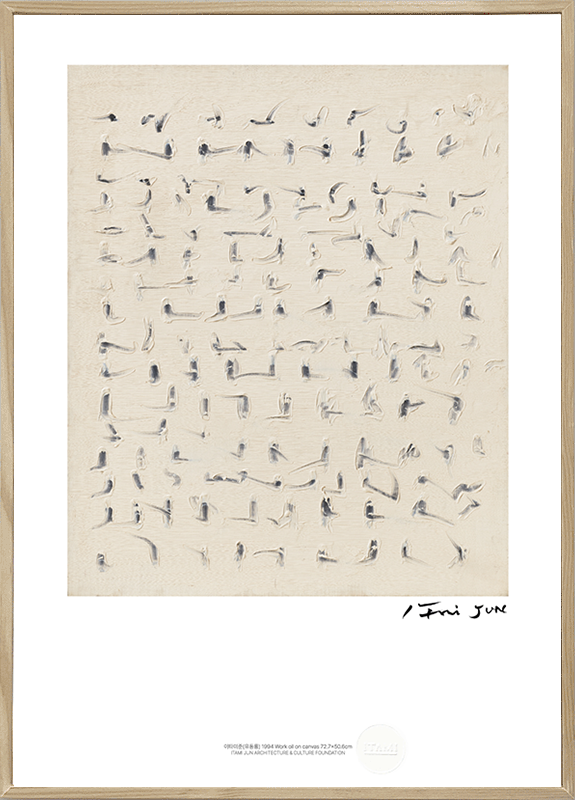 ITAMI JUN
이타미준(유동룡) 1994 Work oil on canvas 72.7×50.6cm
ITAMI JUN ARCHITECTURE & CULTURE FOUNDATION
ITAMI